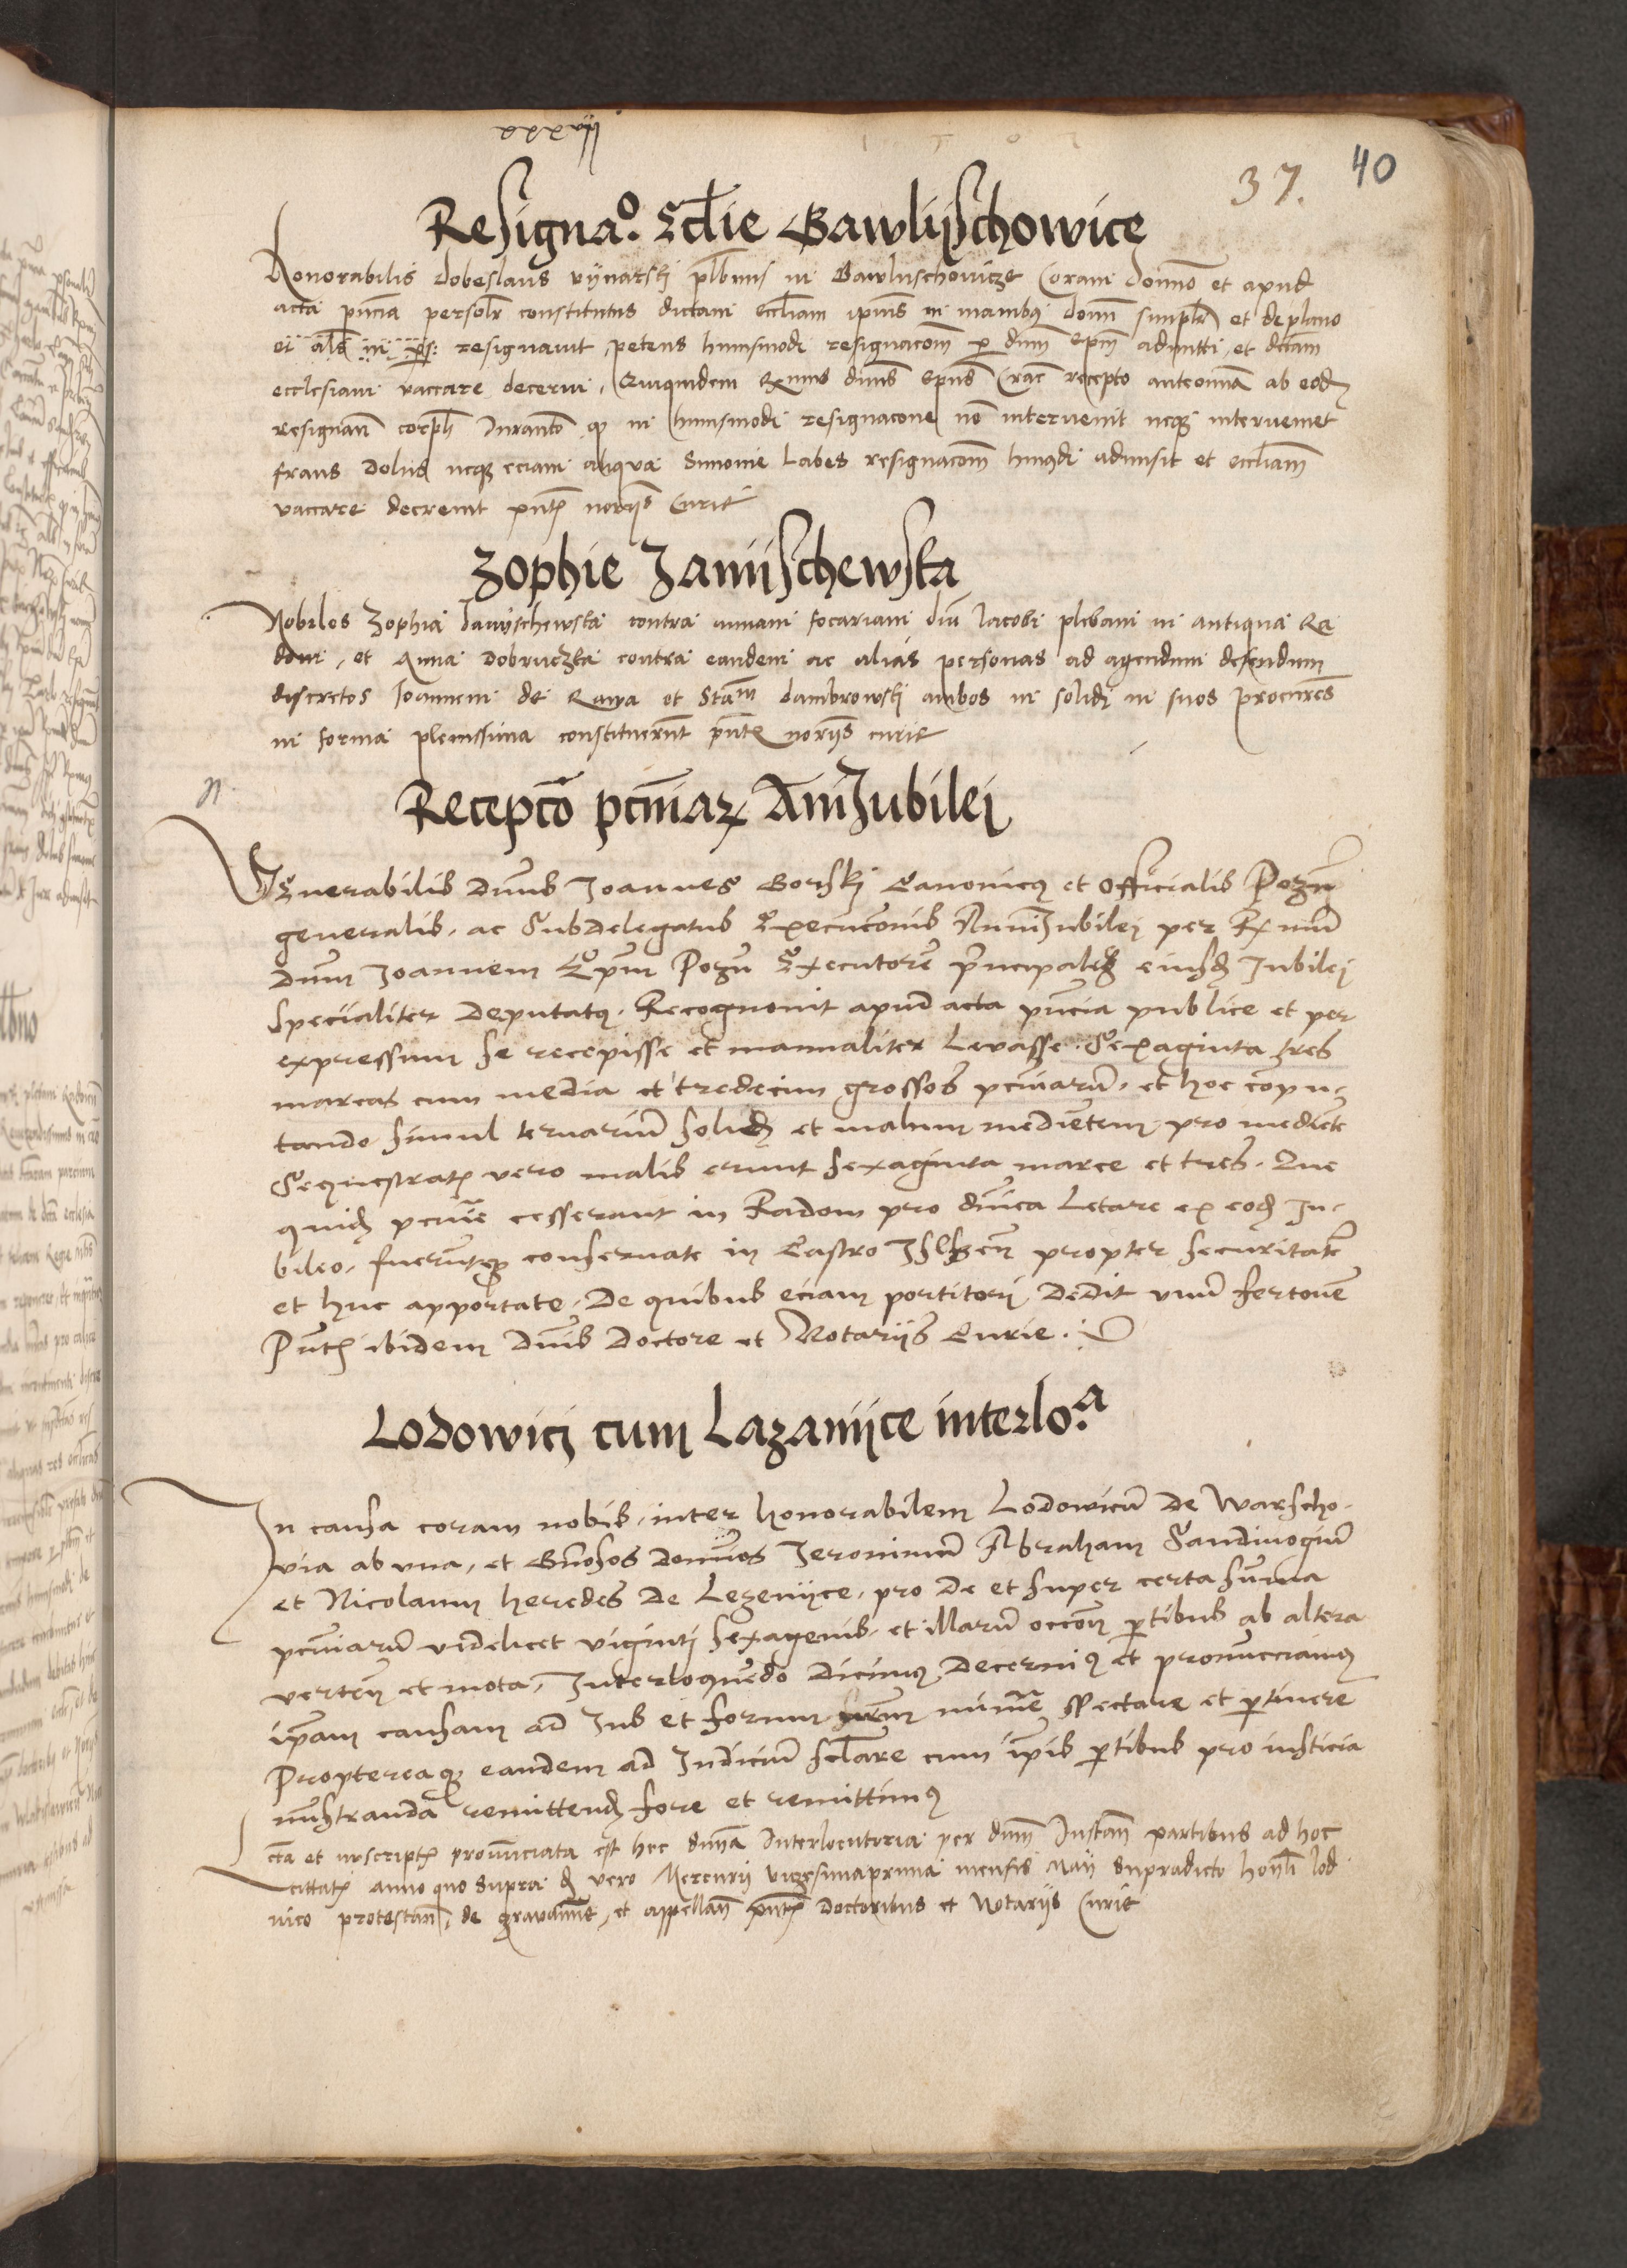 xxxvij
37. 40
Resigna.o ecclie Gawlijschowice
Honorabilis dobeslaus vijnarskj plbnus in Gawluschovicze Coram domno et apud
acta pncia personlr constitutus dictam eccliam ipius in manibus domni simplr et de plano
resignavit, petens huiusmodi resignacom per dnm Epm admitti, et dictam
ecclesiam vaccare decerni, Quiquidem Rxmus dnus Epus Crac recepto ante omnia ab eodem
resignan corpli Iuranto qz in huiusmodi resignacone no intervenit neqz interveniet
fraus dolus neqz eciam aliqua Simonie Labes resignacom hmodi admisit et eccliam
vaccare decrevit pntibus norijs Curie
Zophie Janijschewska
Nobiles Zophia Janijschewska contra annam focariam dni Iacobi plebani in antiqua Ra
dom, et Anna Dobruczka contra eandem ac alias personas ad agendum defendum
discretos Ioannem de Rawa et Stam dambrowskj ambos in solidum in suos procures
in forma plenissima constituerunt pntibus norijs curie
n.
Recepto pcuniarum Anni Jubilej
Venerabilis Dnus Joannes Gorskj Canonicus et Officialis Pozn
generalis, ac Subdelegatus Execuconis Anni Jubilej per Rxmum
dnm Joannem Epum Pozn Executorem Principalem eiusdem Jubilej
specialiter Deputatus. Recognovit apud acta pncia publice et per
expressum se recepisse et manualiter Levasse Sexaginta tres
marcas cum media et tredecim grossos pcuniarum, et hoc compu-
tando simul ternarium solidum et malum medietem pro mediete
Sequestratis vero malis erunt sexaginta marce et tres. Que
quidem pcunie cesserant in Radom pro dnica Letare ex eodem Ju-
bileo, fueruntqz conservate in Castro Ilszen propter securitatem
et huc apportate, De quibus eciam portitorj Dedit unum fertonem
Pntibus ibidem Dnis Doctore et Notarijs Curie.
Lodowicj cum Lazanijce interlo.a
In causa coram nobis, inter honorabilem Lodowicum De Warscho-
via ab una, et Gnosos domnos Jeronimum Abraham Sandivogium
et Nicolaum heredes De Lezenijce, pro De et super certa summa
pcuniarum videlicet vigintj sexagenis, et illarum occone partibus ab altera
verten et mota, Interloquendo Dicimus Decernimus et pronuncciamus
ipam causam ad Jus et forum nrm minime spectare et pertinere
Propterea qz eandem ad Judicium sclare cum ipis partibus pro iusticia
mnstranda remittendam fore et remittimus
Lcta et inscriptis pronunciata est hec dnia Interlocutoria per dnm Instan partibus ad hoc
cittatis anno quo supra die vero Mercurij vigesimaprima mensis Maij supradicto honli Lod
vico protestan, de gravamine, et appellan pntibus Doctoribus et Notarijs Curie